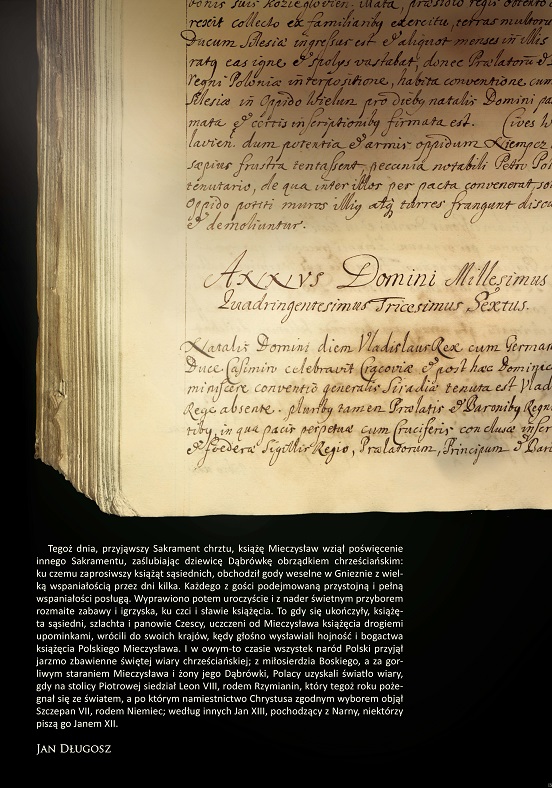 bonis suis kozieglovien. illata, præsidio regis obtento
rexit collecto ex familiariby exercitu, terras
Ducum Silesiæ ingressus est & aliquot menses in illis
ratq cas igne & spolys vastabat, donec Prælatorū &
regni Poloniæ interpositione, habita conventione cum
Silesiæ in Oppido Wielun pro dieby natalis Domini
mata & certis inscriptioniby firmata est. Cives
lavien. dum potentia & armis oppidum Niemcz
sæpius frustra tentassent, pecunia notabili Petro
tenutario, de qua inter illos per pacta convenerat,
Oppido potiti muros illiq atq turres frangunt
& demoliuntur.
Annus Domini Millesimus
Quadringentesimus Tricesimus Sextus.
Natalis Domini diem Vladislaus Rex cum
Duce Casimiro celebravit Cracoviæ & post hæc Dominica
miniscere conventio generalis Siradiæ tenuta est
Rege absente. pluriby tamen Prælatis & Baroniby
tiby, in qua pacis perpetuæ cum Cruciferis conclusæ
& fœdera Sigillis Regio, Prælatorum, Principum &
Tegoż dnia, przyjąwszy Sakrament chrztu, książę Mieczysław wziął poświęcenie
innego Sakramentu, zaślubiając dziewicę Dąbrówkę obrządkiem chrześciańskim:
ku czemu zaprosiwszy książąt sąsiednich, obchodził gody weselne w Gnieznie z wiel-
ką wspaniałością przez dni kilka. Każdego z gości podejmowaną przystojną i pełną
wspaniałości posługą. Wyprawiono potem uroczyście i z nader świetnym przyborem
rozmaite zabawy i igrzyska, ku czci i sławie księżęcia. To gdy się ukończyły, książę-
ta sąsiedni, szlachta i panowie Czescy, uczczeni od Mieczysława książęcia drogiemi
upominkami, wrócili do swoich krajów, kędy głośno wysławiali hojność i bogactwa
książęcia Polskiego Mieczysława. I w owym-to czasie wszystek naród Polski przyjął
jarzmo zbawienne świętej wiary chrześciańskiej; z miłosierdzia Boskiego, a za gor-
liwym staraniem Mieczysława i żony jego Dąbrówki, Polacy uzyskali światło wiary,
gdy na stolicy Piotrowej siedział Leon VIII, rodem Rzymianin, który tegoż roku poże-
gnał się ze światem, a po którym namiestnictwo Chrystusa zgodnym wyborem objął
Szczepan VII, rodem Niemiec; według innych Jan XIII, pochodzący z Narny, niektórzy
piszą go Janem XII.
Jan Długosz